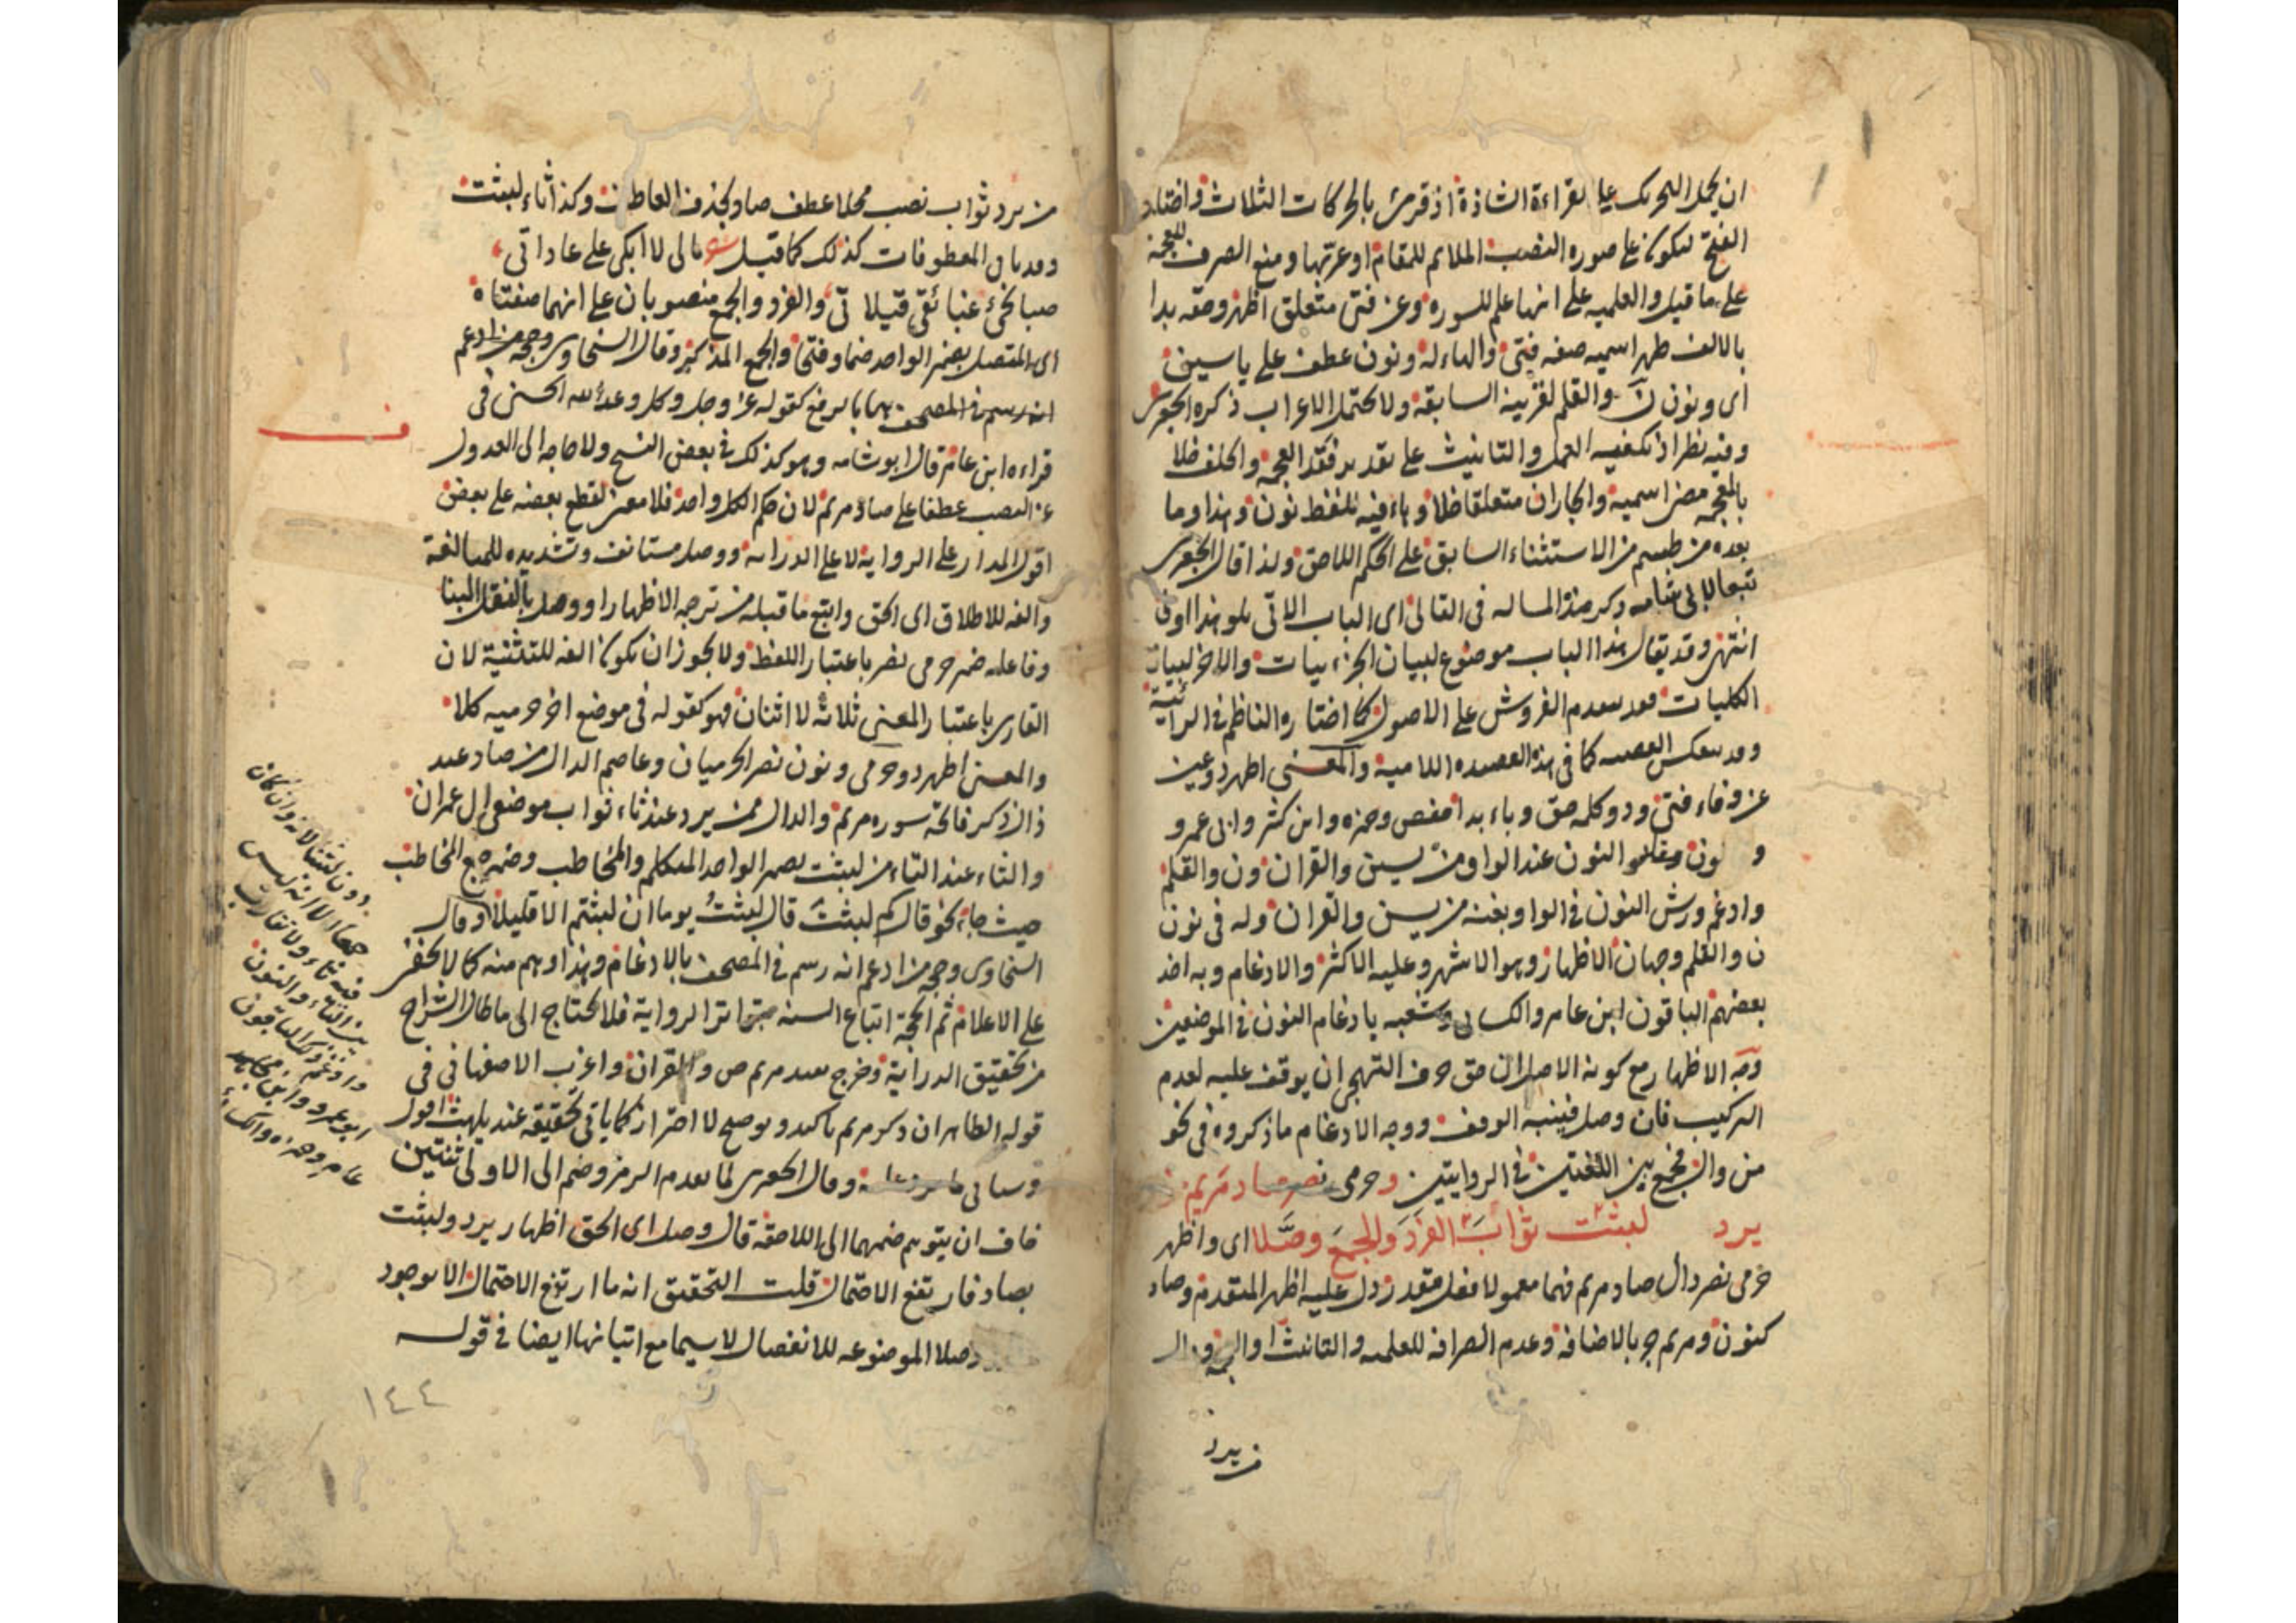 ان يحمل التحريك على القراءة الشاذة اذ قرئ بالحركات الثلاث واختار
الفتح ليكون على صوره النصب الملايم للمقام او عربتها ومنع الصرف للعجمة
على ما قيل والعلميه على انها علم للسوره وعن فتى متعلق اظهر وحقه بدا
بالالف ظهر اسميه صفه فتى والهاء له ونون عطف على ياسين
اى ونون ن والقلم لقرينة السابقة ولا يحتمل الاعراب ذكره الجعبرى
وفيه نظر اذ يكفيه العمل والتانيث على تقدير فقد العجمة والخلف خلا
بالمعجمه مضى اسمية والجاران متعلقا خلا وهاء فيه للفظ نون وهذا وما
بعده من طسم من الاستثناء السابق على الحكم اللاحق ولذا قال الجعبرى
تبعا لابى شامه ذكر هذه المساله فى التالى اى الباب الاتى يلو هذا اوفق
انتهى وقد يقال هذا الباب موضوع لبيان الجزئييات والاخر لبيان
الكليات فقد يقدم الفروش على الاصول كما اختاره الناظم فى الرائية
وقد ينعكس القضيه كما فى هذه القصيده اللامية والمعنى اظهر ذو عين
عن وفاء فتى وذو كلمه حق وباء بدا حفص وحمزه وابن كثير وابى عمرو
و نون وقالو النون عند الواو من يسين والقران ون والقلم
وادغم ورش النون فى الواو بغنه من يسين والقران وله فى نون
ن والقلم وجهان الاظهار وهو الاشهر وعليه الاكثر والادغام وبه اخذ
بعضهم الباقون ابن عامر والكسائى وشعبه بادغام النون فى الموضعين
وجه الاظهار مع كونه الاصل ان حق حرف التهجى ان يوقف عليه لعدم
التركيب فان وصل فبنية الوقف ووجه الادغام ما ذكروه فى نحو
من وال فجمع بين اللغتين فى الروايتين وحرمى نصر صاد مريم من
يرد لبثت ثواب الفرد والجمع وصلا اى واظهر
حرمى نصر دال صاد مريم فهما معمولا فعل مقدر دل عليه اظهر المتقدم وصاد
كنون ومريم جر بالاضافة وعدم انصرافه للعلميه والتانيث او العجمة ودال
من يرد
من يرد ثواب نصب محلا عطف صاد بحذف العاطف وكذا ثاء لبثت
وقد ياتى المعطوفات كذلك كما قيل شعر مالى لا ابكى على عاداتى
صبائحى غبائقى قيلاتى والفرد والجمع منصوبان على انهما صفتاه
اى المتصل بضمير الواحد ضما وفتحا والجمع المذكر وقال السخاوى وحجه من ادغم
انه رسم فى المصحف بهما بالرفع كقوله عز وجل وكل وعد الله الحسنى فى
قراءه ابن عامر قال ابو شامه وهو كذلك فى بعض النسخ ولا حاجه الى العدول
عن النصب عطفا على صاد مريم لان حكم الكل واحد فلا معنى لقطع بعضه على بعض
اقول المدار على الرواية لا على الدرايه ووصل مستانف وتشديده للمبالغة
والفه للاطلاق اى الحق واتبع ما قبله من ترجمه الاظهار او وصل بالنقل الينا
وفاعله ضمير حرمى نصر باعتبار اللفظ ولا يجوز ان يكون الفه للتثنية لان
القارى باعتبار المعنى ثلاثه لا اثنان فهو كقوله فى موضع اخر حرميه كلا
والمعنى اظهر ذو حرمى ونون نصر الحرميان وعاصم الدال من صاد عند
ذال ذكر فاتحة سوره مريم والدال ممن يرد عند ثاء ثواب موضعى ال عمران
والثاء عند التاء من لبثت بضمير الواحد المتكلم والمخاطب وضمير جمع المخاطب
حيث جاء نحو قال كم لبثت قال لبثت يوما ان لبثتم الا قليلا وقال
السخاوى وحجه من ادغم انه رسم فى المصحف بالادغام وهذا وهم منه كما لا يخفى
على الاعلام ثم الحجة اتباع السنه متواتر الرواية فلا يحتاج الى ما طال الشراح
من تحقيق الدراية وخرج بقيد مريم ص والقران واغرب الاصفهانى فى
قوله الظاهر ان ذكر مريم تاكيد وتوضيح لا احتراز كما ياتى تحقيقه عند يلهث اقول
وقال الجعبرى لما تقدم الرمز وضم الى الاولى ثنتين
خاف ان يتوهم ضمهما الى اللاحقه قال وصل اى الحق اظهار يرد ولبثت
بصاد فارتفع الاحتمال قلت التحقيق انه ما ارتفع الاحتمال الا بوجود
وصلا الموضوعه للانفصال لا سيما مع اتيانها ايضا فى قوله
دون لبثنا لانه وان كان
جمعا الا انه ليس
فيه ثاء ولا تقارب
بين الثاء والنون
وادغم ذلك الباقون
ابو عمرو وابن
عامر وحمزه والكسائى
١٤٤